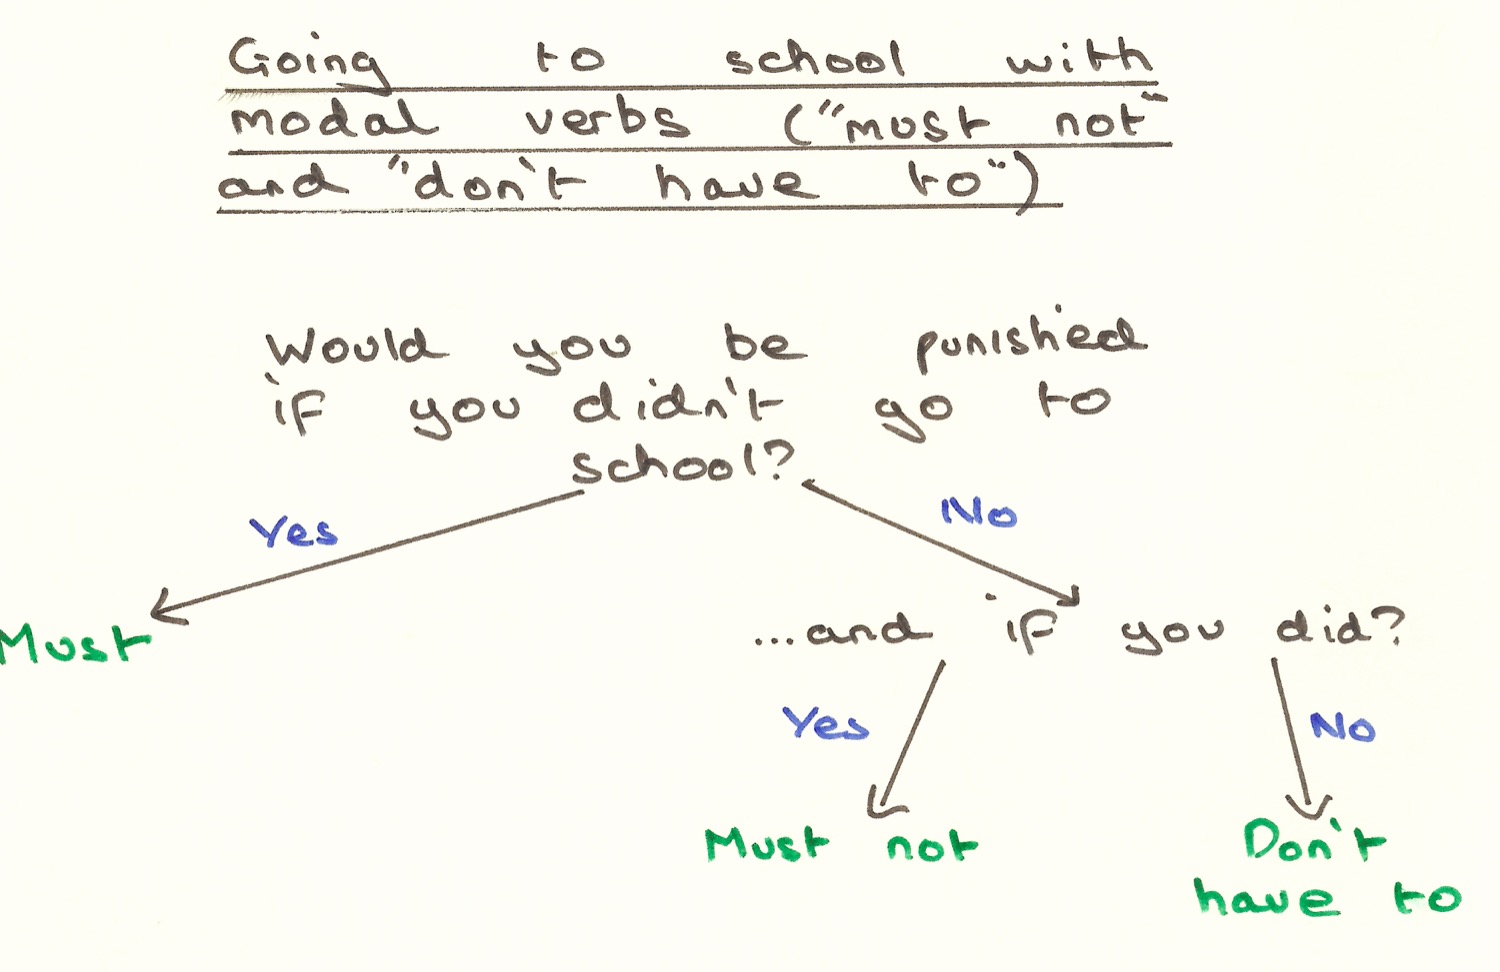 Going to school with
modal verbs ("must not"
and "don't have to")
Would you be punished
if you didn't go to
school?
Yes
No
Must
...and if you did?
Yes
No
Must not
Don't
have to